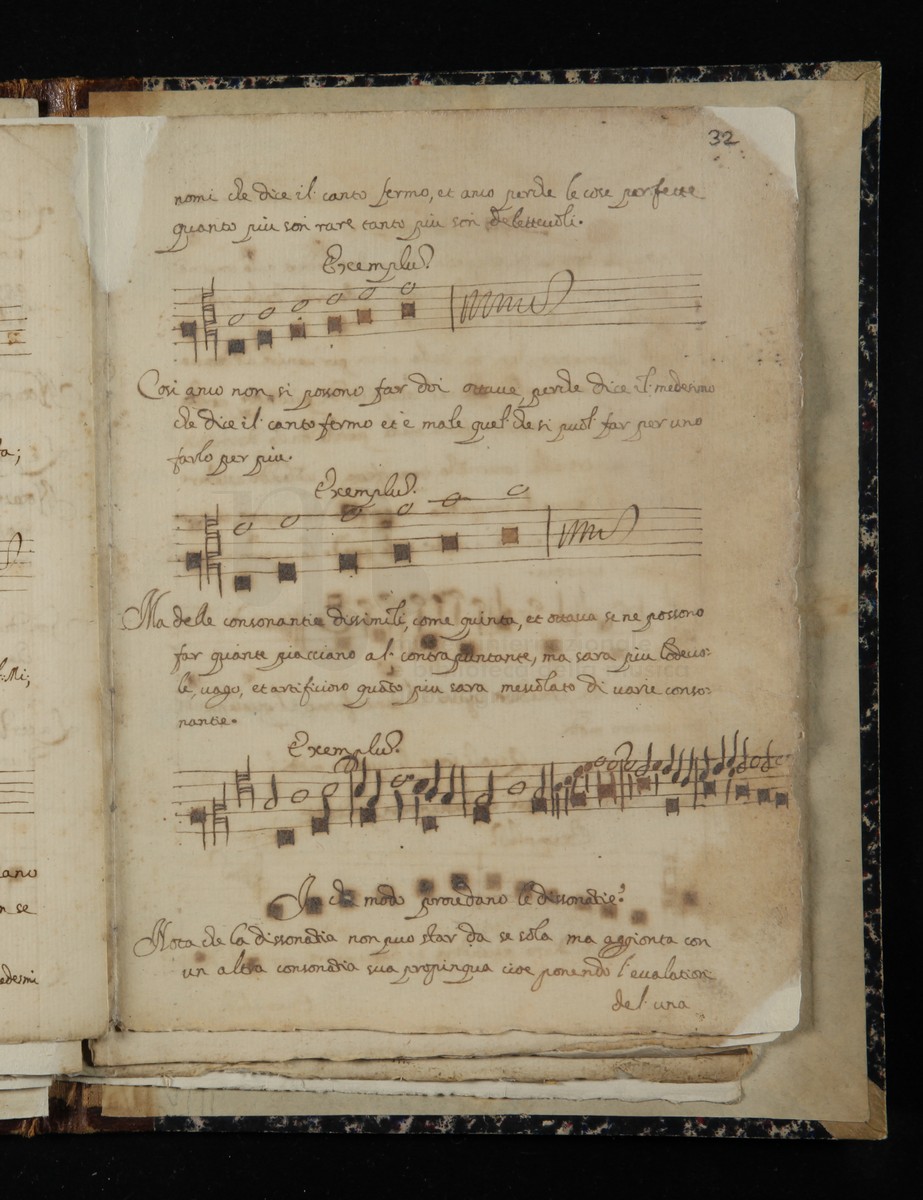 32
nomi che dice il canto fermo, et anco perche le cose perfette
quanto piu son rare tanto piu son delettevoli.
Exemplu.
Cosi anco non si possono far doi ottave, perche dice il medesimo
che dice il canto fermo et è male quel che si puol far per uno
farlo per piu.
Exemplu.
Ma delle consonantie dissimili, come quinta, et ottava se ne possono
far quante piacciano al contrapuntante, ma sara piu lodevo=
le, vago, et artificioso quãto piu sara mescolato di varie conso=
nantie.
Exemplu.
In che modo procedano le dissonãtie.
Nota che la dissonãtia non puo star da se sola ma aggionta con
un altra consonãtia sua propinqua cioe ponendo l'
del una